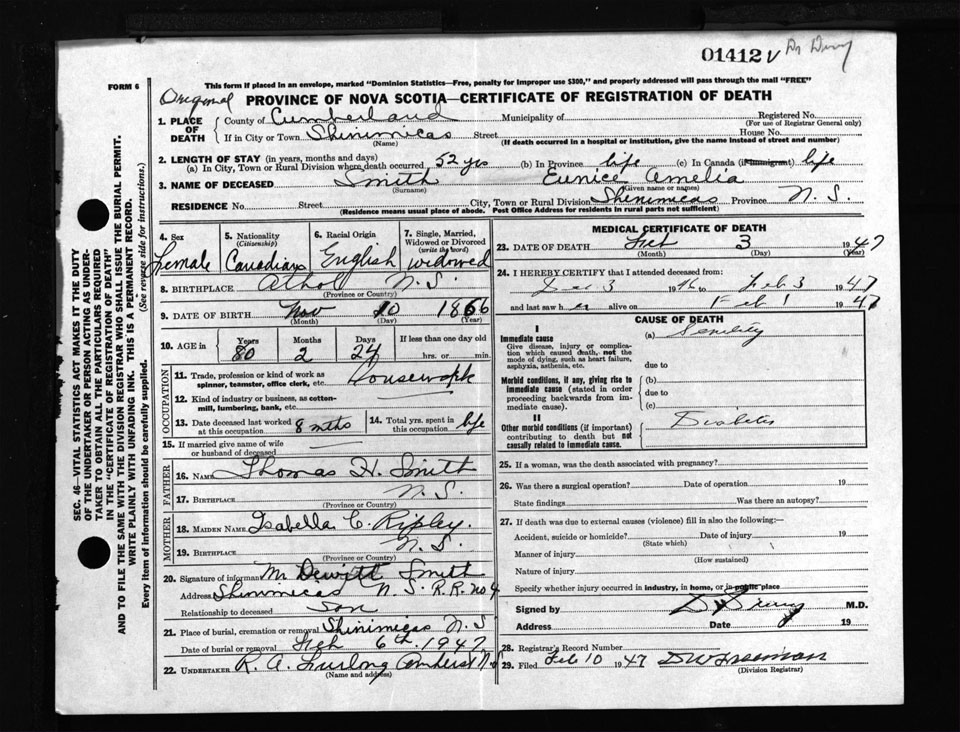 01412 V
FORM 6
This form if placed in an envelope, marked "Dominion Statistics—Free, penalty for improper use $300," and properly addressed will pass through the mail "FREE"
Original
PROVINCE OF NOVA SCOTIA—CERTIFICATE OF REGISTRATION OF DEATH
SEC. 46—VITAL STATISTICS ACT MAKES IT THE DUTY
OF THE UNDERTAKER OR PERSON ACTING AS UNDER-
TAKER TO OBTAIN ALL THE PARTICULARS REQUIRED
IN THE "CERTIFICATE OF REGISTRATION OF DEATH"
AND TO FILE THE SAME WITH THE DIVISION REGISTRAR WHO SHALL ISSUE THE BURIAL PERMIT.
WRITE PLAINLY WITH UNFADING INK. THIS IS A PERMANENT RECORD.
Every item of information should be carefully supplied. (See reverse side for instructions.)
1. PLACE OF DEATH
County of Cumberland Municipality of Registered No.
(For use of Registrar General only)
If in City or Town Shinimicas Street House No.
(Name) (If death occurred in a hospital or institution, give the name instead of street and number)
2. LENGTH OF STAY (in years, months and days)
(a) In City, Town or Rural Division where death occurred 52 yrs (b) In Province life (c) In Canada (if immigrant) life
3. NAME OF DECEASED Smith Eunice Amelia
(Surname) (Given name or names)
RESIDENCE No. Street City, Town or Rural Division Shinimicas Province N.S.
(Residence means usual place of abode. Post Office Address for residents in rural parts not sufficient)
4. Sex Female
5. Nationality (Citizenship) Canadian
6. Racial Origin English
7. Single, Married, Widowed or Divorced (write the word) widowed
8. BIRTHPLACE Athol N.S.
(Province or Country)
9. DATE OF BIRTH Nov 10 1866
(Month) (Day) (Year)
10. AGE in Years 80 Months 2 Days 24 If less than one day old hrs. or min.
OCCUPATION
11. Trade, profession or kind of work as
spinner, teamster, office clerk, etc. Housework
12. Kind of industry or business, as cotton-
mill, lumbering, bank, etc.
13. Date deceased last worked
at this occupation 8 mths
14. Total yrs. spent in
this occupation life
15. If married give name of wife
or husband of deceased
FATHER
16. NAME Thomas H. Smith
17. BIRTHPLACE N.S.
MOTHER
18. MAIDEN NAME Isabella C. Ripley.
19. BIRTHPLACE N.S.
(Province or Country)
20. Signature of informant Mr Dewitt Smith
Address Shinimicas N.S. R.R. no 4
Relationship to deceased Son
21. Place of burial, cremation or removal Shinimicas N.S.
Date of burial or removal Feb 6th. 1947
22. UNDERTAKER R. A. Furlong Amherst N.S
(Name and address)
MEDICAL CERTIFICATE OF DEATH
23. DATE OF DEATH Feb 3 1947
(Month) (Day) (Year)
24. I HEREBY CERTIFY that I attended deceased from:
Dec 3 1946 to Feb 3 1947
and last saw her alive on Feb 1 1947
CAUSE OF DEATH
I
Immediate cause
Give disease, injury or complica-
tion which caused death, not the
mode of dying, such as heart failure,
asphyxia, asthenia, etc.
(a) Senility
due to
Morbid conditions, if any, giving rise to
immediate cause (stated in order
proceeding backwards from im-
mediate cause).
(b)
due to
(c)
II
Other morbid conditions (if important)
contributing to death but not
causally related to immediate cause.
Diabetes
25. If a woman, was the death associated with pregnancy?
26. Was there a surgical operation? Date of operation 19
State findings Was there an autopsy?
27. If death was due to external causes (violence) fill in also the following:—
Accident, suicide or homicide? Date of injury 19
(State which)
Manner of injury
(How sustained)
Nature of injury
Specify whether injury occurred in industry, in home, or in public place
Signed by M.D.
Address Date 19
28. Registrar's Record Number
29. Filed Feb 10 1947 D W Freeman
(Division Registrar)